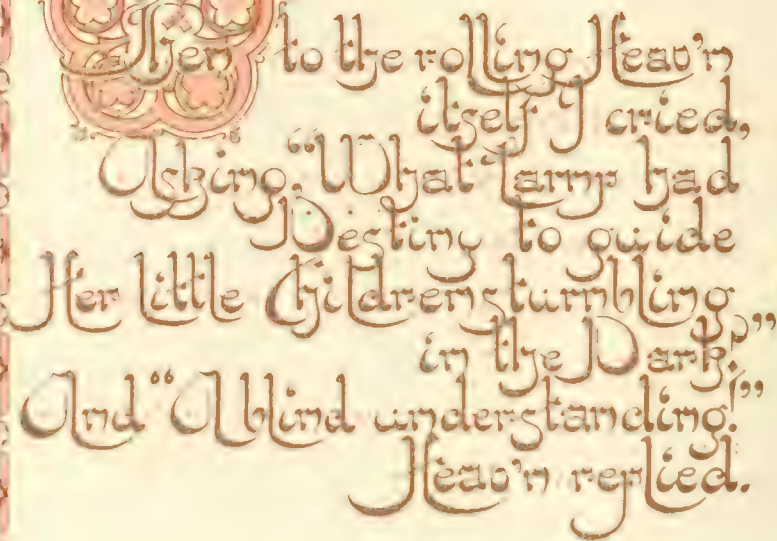 Then to the rolling Heav'n
itself I cried,
Asking, "What Lamp had
Destiny to guide
Her little Children stumbling
in the Dark?"
And "A blind understanding!"
Heav'n replied.